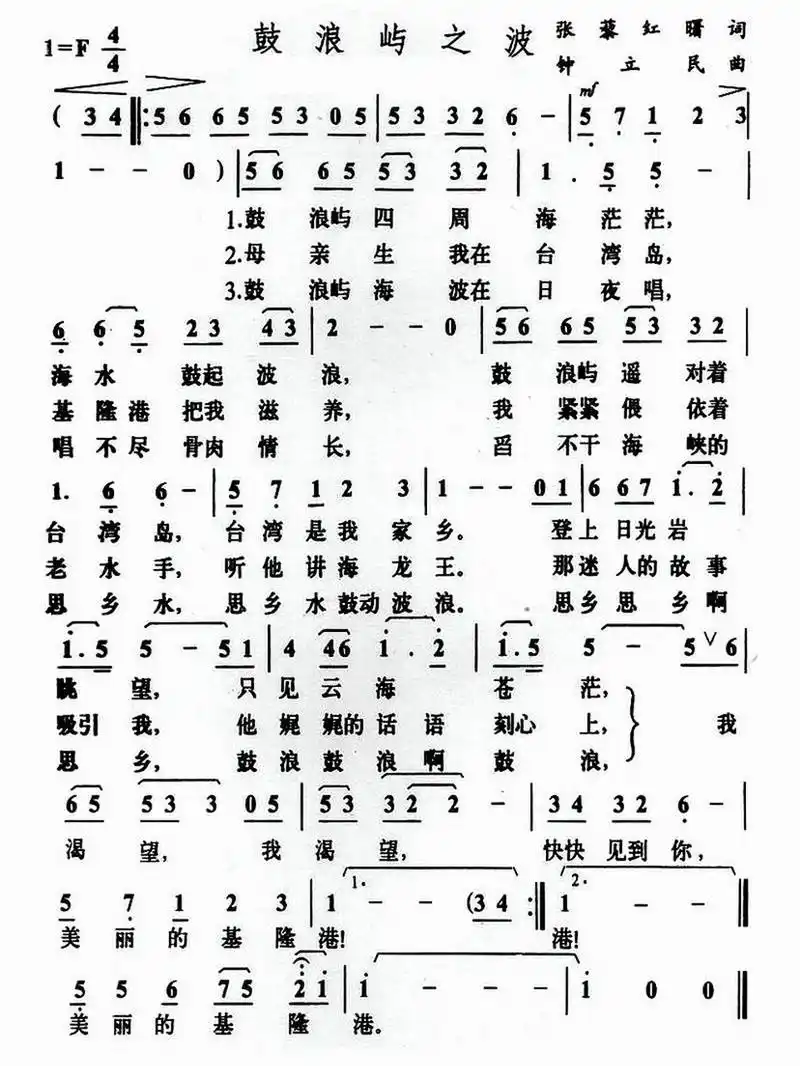 1=F 4/4 鼓浪屿之波 张藜 红曙 词
钟立民 曲
mf
( 3 4 ‖: 5 6 6 5 5 3 0 5 | 5 3 3 2 6 - | 5 7 1 2 3
1 - - 0 ) | 5 6 6 5 5 3 3 2 | 1 . 5 5 -
1.鼓 浪屿 四 周 海 茫 茫,
2.母 亲 生 我在 台 湾 岛,
3.鼓 浪屿 海 波在 日 夜 唱,
6 6 5 2 3 4 3 | 2 - - 0 | 5 6 6 5 5 3 3 2
海 水 鼓起 波 浪, 鼓 浪屿 遥 对着
基 隆 港 把我 滋 养, 我 紧紧 偎 依着
唱 不 尽 骨肉 情 长, 舀 不干 海 峡的
1. 6 6 - | 5 7 1 2 3 | 1 - - 0 1 | 6 6 7 1 . 2
台 湾 岛, 台 湾 是 我 家 乡。 登上 日光 岩
老 水 手, 听 他 讲 海 龙 王。 那迷 人的 故 事
思 乡 水, 思 乡 水 鼓动 波 浪。 思乡 思 乡 啊
1 . 5 5 - 5 1 | 4 4 6 1 . 2 | 1 . 5 5 - 5 ∨ 6
眺 望, 只 见 云 海 苍 茫,
吸引 我, 他 娓 娓的 话 语 刻心 上, 我
思 乡, 鼓 浪 鼓 浪 啊 鼓 浪,
6 5 5 3 3 0 5 | 5 3 3 2 2 - | 3 4 3 2 6 -
渴 望, 我 渴 望, 快快 见到 你,
1. 2.
5 7 1 2 3 | 1 - - (3 4 :‖ 1 - - ‖
美 丽 的 基 隆 港! 港!
5 5 6 7 5 2 1 | 1 - - - | 1 0 0 ‖
美 丽 的 基 隆 港。